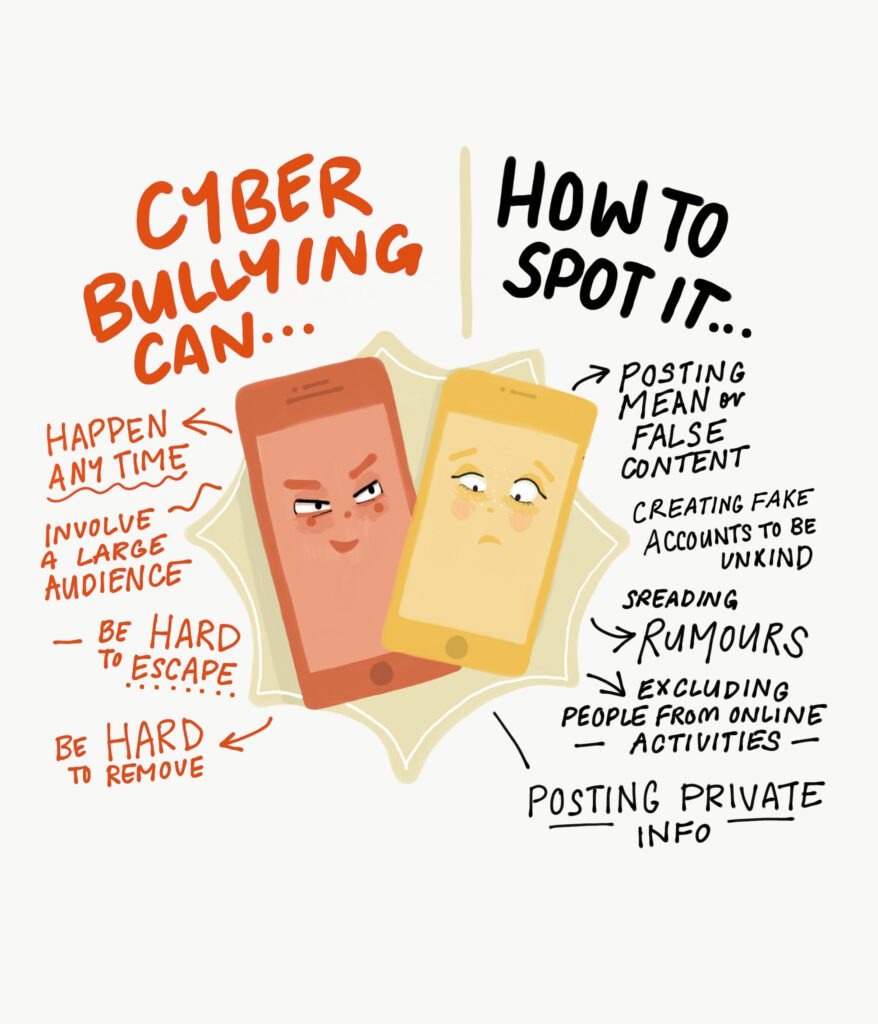 CYBER
BULLYING
CAN...
HAPPEN
ANY TIME
INVOLVE
A LARGE
AUDIENCE
BE HARD
TO ESCAPE
BE HARD
TO REMOVE
HOW TO
SPOT IT...
POSTING
MEAN or
FALSE
CONTENT
CREATING FAKE
ACCOUNTS TO BE
UNKIND
SREADING
RUMOURS
EXCLUDING
PEOPLE FROM ONLINE
ACTIVITIES
POSTING PRIVATE
INFO